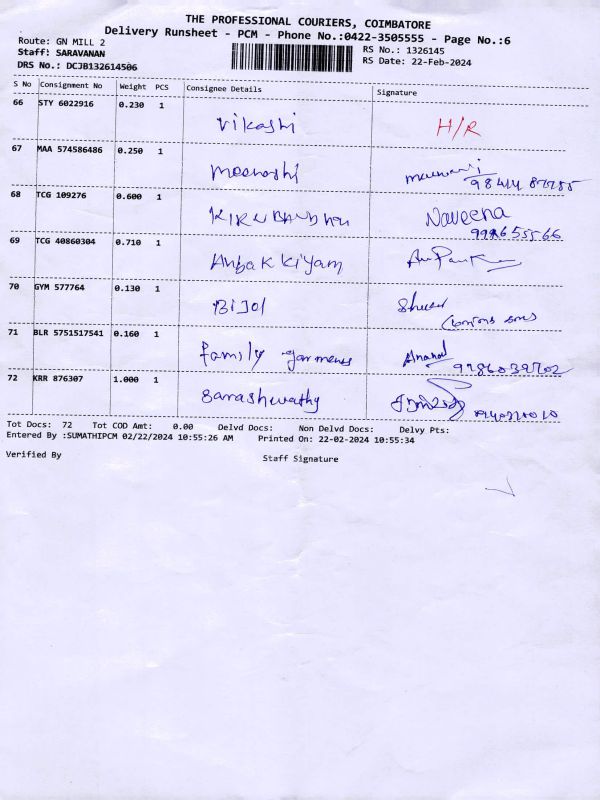 THE PROFESSIONAL COURIERS, COIMBATORE
Delivery Runsheet - PCM - Phone No.:0422-3505555 - Page No.:6
Route: GN MILL 2
RS No.: 1326145
Staff: SARAVANAN
RS Date: 22-Feb-2024
DRS No.: DCJB132614506
S No Consignment No Weight PCS Consignee Details Signature
66 STY 6022916 0.230 1
Vikashi H/R
67 MAA 574586486 0.250 1
Meenashi
68 TCG 109276 0.600 1
Naveena
69 TCG 40860304 0.710 1
Anbakkiyam
70 GYM 577764 0.130 1
Bijol
71 BLR 5751517541 0.160 1
family garments Anand
72 KRR 876307 1.000 1
Sarashwathy
Tot Docs: 72 Tot COD Amt: 0.00 Delvd Docs: Non Delvd Docs: Delvy Pts:
Entered By :SUMATHIPCM 02/22/2024 10:55:26 AM Printed On: 22-02-2024 10:55:34
Verified By Staff Signature